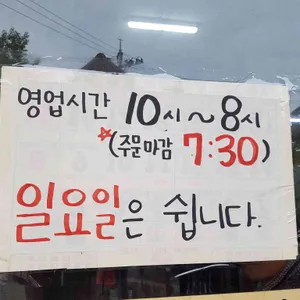 영업시간 10시~8시
☆(주문마감 7:30)
일요일은 쉽니다.